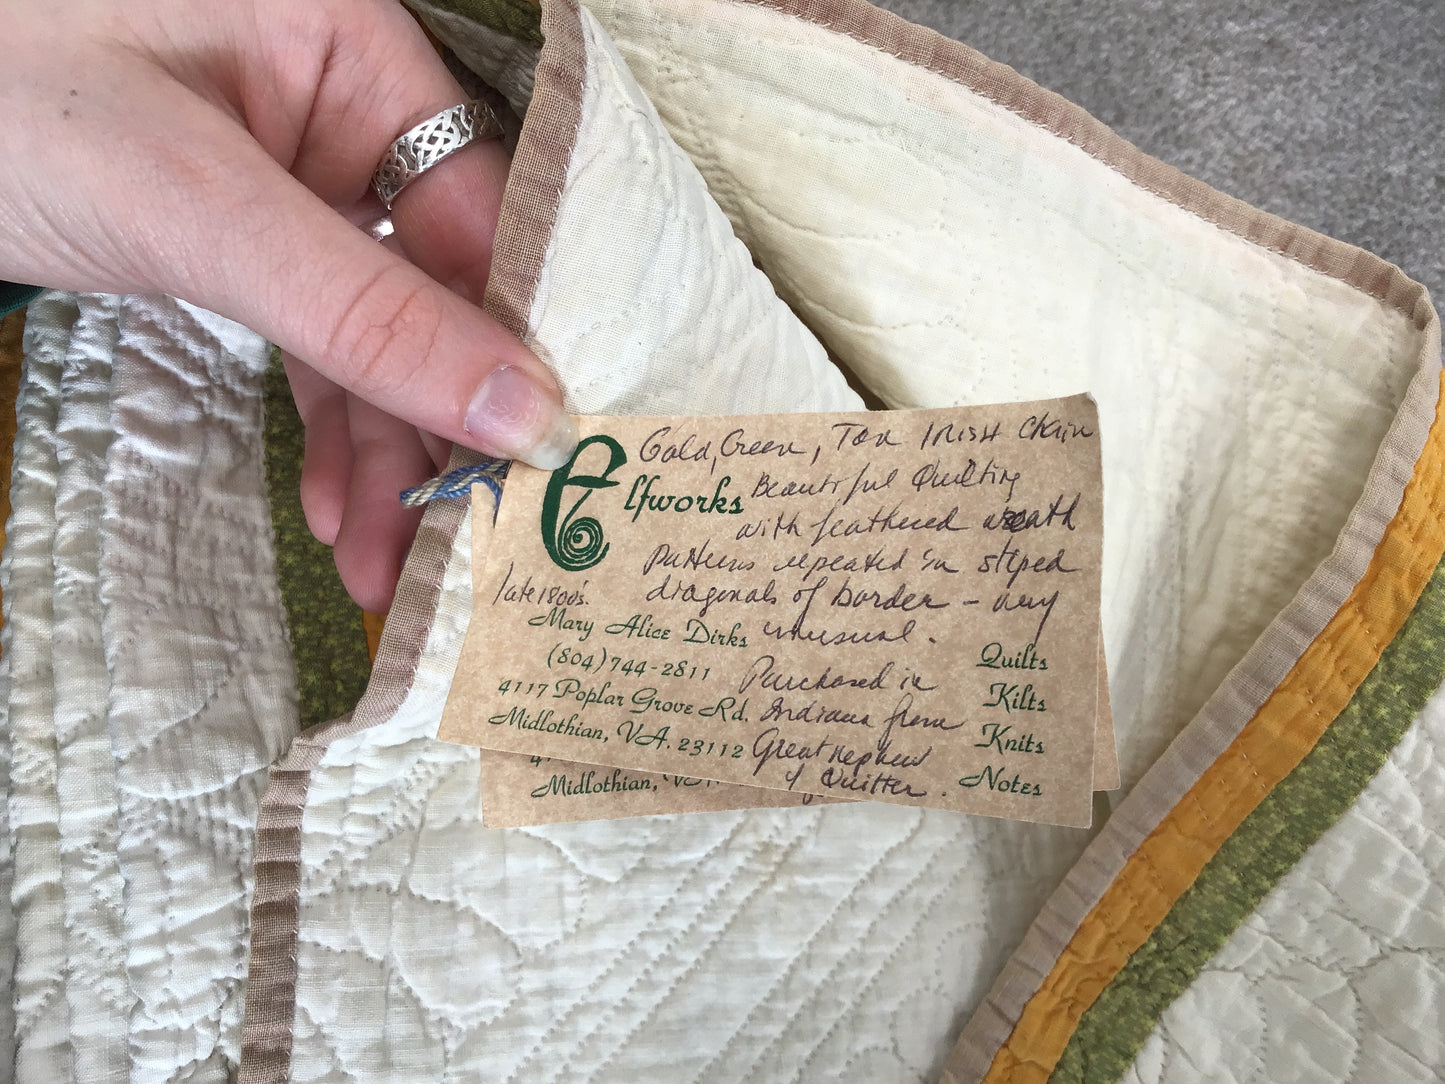 Gold, Green, Tan IRISH Chain
Elfworks
Beautiful Quilting
with feathered wreath
patterns repeated in striped
late 1800's.
diagonals of border - very
unusual.
Mary Alice Dirks
(804) 744-2811
4117 Poplar Grove Rd.
Midlothian, VA. 23112
Purchased in
Indiana from
Great nephew
of Quilter.
Quilts
Kilts
Knits
Notes
Midlothian,